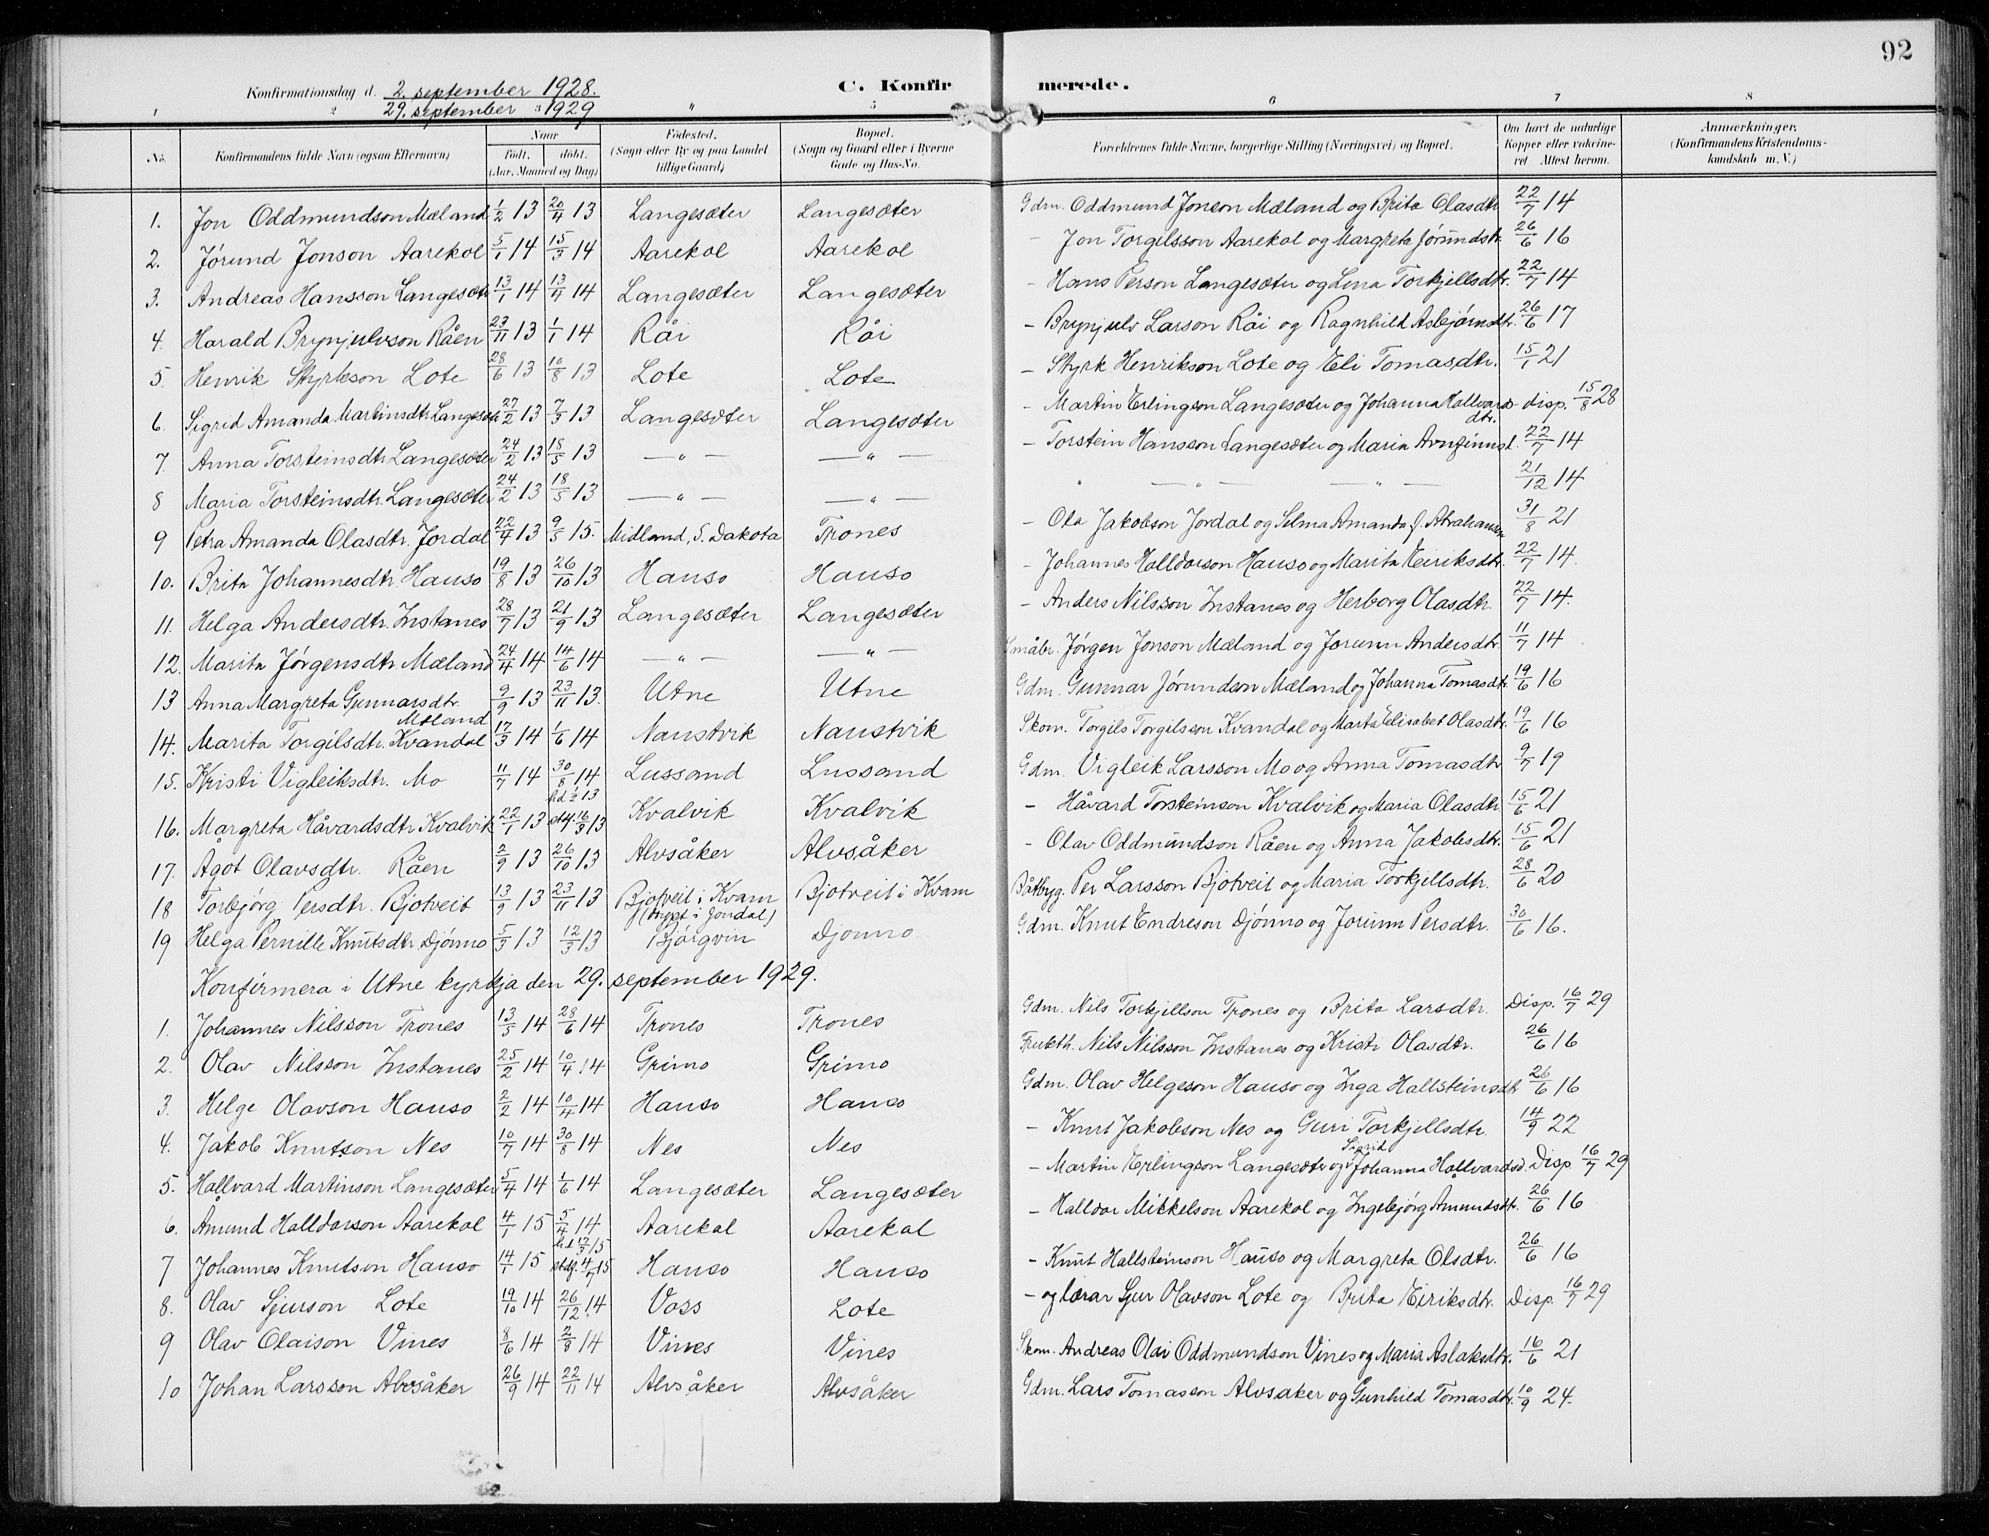 92
Konfirmationsdag d. 2. september 1928.
29. september 1929
C. Konfirmerede.
1 2 3 " 5 6 7 8
No. Konfirmandens fulde Navn (ogsaa Efternavn) Naar født. døbt. (Aar, Maaned og Dag) Fødested. (Sogn eller By og paa Landet tillige Gaard) Bopæl. (Sogn og Gaard eller i Byerne Gade og Hus-No. Forældrenes fulde Navne, borgerlige Stilling (Næringsvei) og Bopæl. Om havt de naturlige Kopper eller vaccineret Attest herom. Anmærkninger, (Konfirmandens Kristendomskundskab m. V.)
1. Jon Oddmundson Mæland 1/2 13 20/4 13 Langesæter Langesæter Gdm. Oddmund Jonson Mæland og Brita Olasdtr. 22/7 14
2. Jørund Jonson Aarekol 5/1 14 15/3 14 Aarekol Aarekol - Jon Torgilsson Aarekol og Margreta Jørundsdtr. 26/6 16
3. Andreas Hansson Langesæter 13/1 14 13/4 14 Langesæter Langesæter - Hans Person Langesæter og Lina Torkjellsdtr. 22/7 14
4. Harald Brynjulvson Råen 23/11 13 1/1 14 Råi Råi - Brynjulv Larson Råi og Ragnhild Asbjørnsdtr. 26/6 17
5. Henrik Styrkson Lote 28/6 13 10/8 13 Lote Lote - Styrk Henrikson Lote og Eli Tomasdtr. 15/1 21
6. Sigrid Amanda Martinsdtr. Langesæter 27/2 13 7/3 13 Langesæter Langesæter - Martin Erlingson Langesæter og Johanna Hallvardsdtr. disp. 15/8 28
7. Anna Torsteinsdtr. Langesæter 24/2 13 18/5 13 — " — — " — - Torstein Hansson Langesæter og Maria Arnfinnsd. 22/7 14
8 Maria Torsteinsdtr. Langesæter 24/2 13 18/5 13 — " — — " — " — " — — " — 21/12 14
9 Petra Amanda Olasdtr. Jordal 22/4 13 9/5 15. Midland, S. Dakota Trones - Ola Jakobson Jordal og Selma Amanda J. Abrahamsen 31/8 21
10. Brita Johannesdtr. Hauso 19/8 13 26/10 13 Hauso Hauso - Johannes Halldorson Hauso og Marita Eiriksdtr. 22/7 14.
11. Helga Andersdtr. Instanes 28/7 13 21/9 13 Langesæter Langesæter - Anders Nilsson Instanes og Herborg Olasdtr. 22/7 14.
12. Marita Jørgensdtr. Mæland 24/4 14 14/6 14 — " — — " — Småbr. Jørgen Jonson Mæland og Jorunn Andersdtr. 11/7 14
13 Anna Margreta Gunnarsdtr. Mæland 9/9 13 23/11 13. Utne Utne Gdm. Gunnar Jørundson Mæland og Johanna Tomasdtr. 19/6 16
14. Marita Torgilsdtr. Kvandal 17/3 14 1/6 14 Naustvik Naustvik Skom. Torgils Torgilsson Kvandal og Marta Elisabet Olasdtr. 19/6 16
15. Kristi Vigleiksdtr. Mo 11/7 14 30/8 14 Lussand Lussand Gdm. Vigleik Larsson Mo og Anna Tomasdtr. 9/7 19
16. Margreta Håvardsdtr. Kvalvik 22/1 13 16/3 13 Kvalvik Kvalvik - Håvard Torsteinson Kvalvik og Maria Olasdtr. 15/6 21
17. Ågot Olavsdtr. Råen 2/9 13 26/10 13 Alvsåker Alvsåker - Olav Oddmundson Råen og Anna Jakobsdtr. 15/6 21
18 Torbjørg Persdtr. Bjotveit 13/9 13 23/11 13 Bjotveit i Kvam (døypt i Jondal) Bjotveit i Kvam Båtbyg. Per Larsson Bjotveit og Maria Torkjellsdtr. 28/6 20
19 Helga Pernille Knutsdtr. Djønno 5/3 13 12/3 13 Bjørgvin Djønno Gdm. Knut Endreson Djønno og Jorunn Persdtr. 30/6 16.
Konfirmera i Utne kyrkja den 29. september 1929.
1. Johannes Nilsson Trones 13/5 14 28/6 14 Trones Trones Gdm. Nils Torkjellson Trones og Brita Larsdtr. Disp. 16/7 29
2. Olav Nilsson Instanes 25/2 14 10/4 14 Grimo Grimo Frukth. Nils Nilsson Instanes og Kristi Olasdtr. 26/6 16
3. Helge Olavson Hauso 2/2 14 10/4 14 Hauso Hauso Gdm. Olav Helgeson Hauso og Inga Hallsteinsdtr 26/6 16
4. Jakob Knutson Nes 10/7 14 30/8 14 Nes Nes - Knut Jakobson Nes og Guri Torkjellsdtr. 14/9 22
5. Hallvard Martinson Langesæter 5/4 14 1/6 14 Langesæter Langesæter - Martin Erlingson Langesæter og Sigrid Johanna Hallvardsd. Disp 16/7 29
6. Åmund Halldorson Aarekol 4/1 15 5/4 14 Aarekol Aarekol - Halldor Mikkelson Aarekol og Ingebjørg Åmundsdtr. 26/6 16
7 Johannes Knutson Hauso 14/1 15 hd 17/3 15 stdf. 4/7 15 Hauso Hauso - Knut Hallsteinson Hauso og Margreta Olsdtr. 26/6 16
8. Olav Sjurson Lote 19/10 14 26/12 14 Voss Lote - og lærar Sjur Olavson Lote og Brita Eiriksdtr. Disp. 16/7 29
9 Olav Olaison Vines 8/6 14 2/8 14 Vines Vines Skom. Andreas Olai Oddmundson Vines og Maria Aslaksdtr. 16/6 21
10 Johan Larsson Alvsåker 26/9 14 22/11 14 Alvsåker Alvsåker Gdm. Lars Tomasson Alvsaker og Gunhild Tomasdtr. 10/9 24.